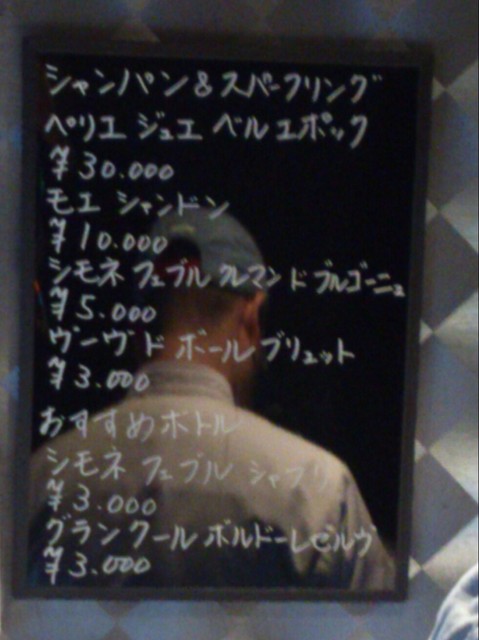 シャンパン&スパークリング
ペリエ ジュエ ベル エポック
¥30.000
モエ シャンドン
¥10.000
シモネ フェブル クレマン ド ブルゴーニュ
¥5.000
ヴーヴ ド ボール ブリュット
¥3.000
おすすめボトル
シモネ フェブル シャブリ
¥3.000
グラン クール ボルドーレゼルヴ
¥3.000